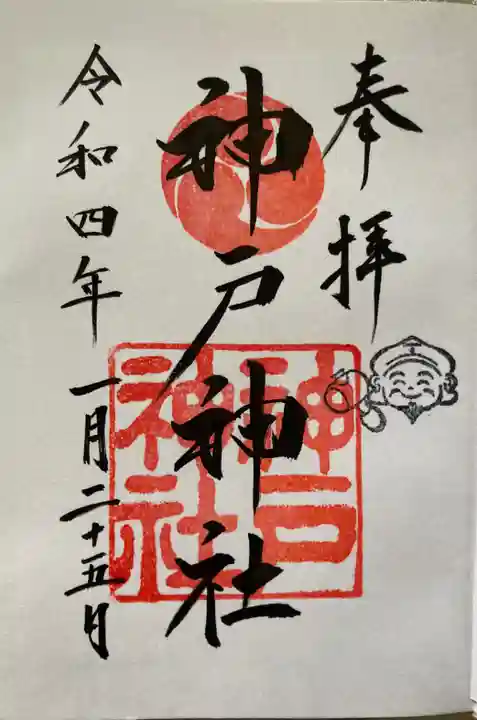 奉拝
神戸神社
神戸
神社
令和四年一月二十五日